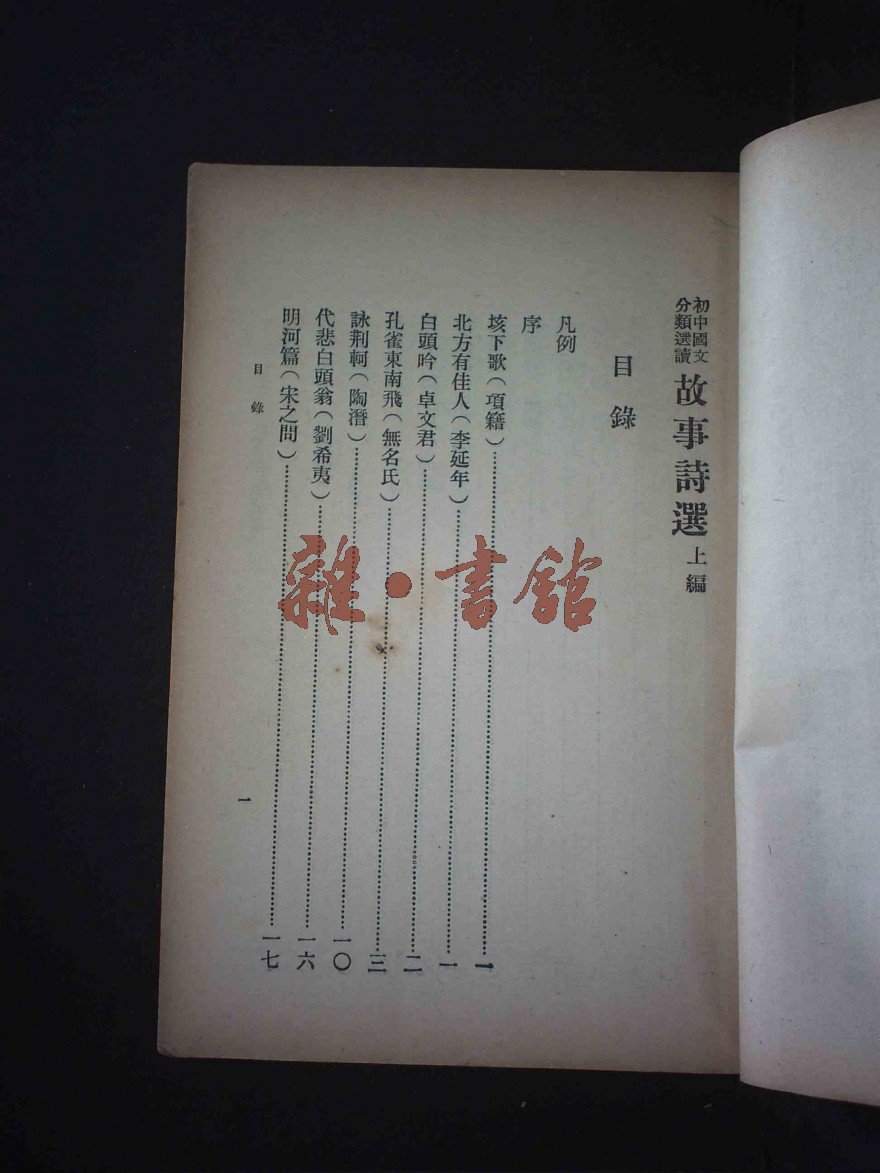 初中國文
分類選讀
故事詩選 上編
目錄
凡例
序
垓下歌(項籍)……一
北方有佳人(李延年)……一
白頭吟(卓文君)……二
孔雀東南飛(無名氏)……三
詠荆軻(陶潛)……一〇
代悲白頭翁(劉希夷)……一六
明河篇(宋之問)……一七
目錄
一
雜·書館